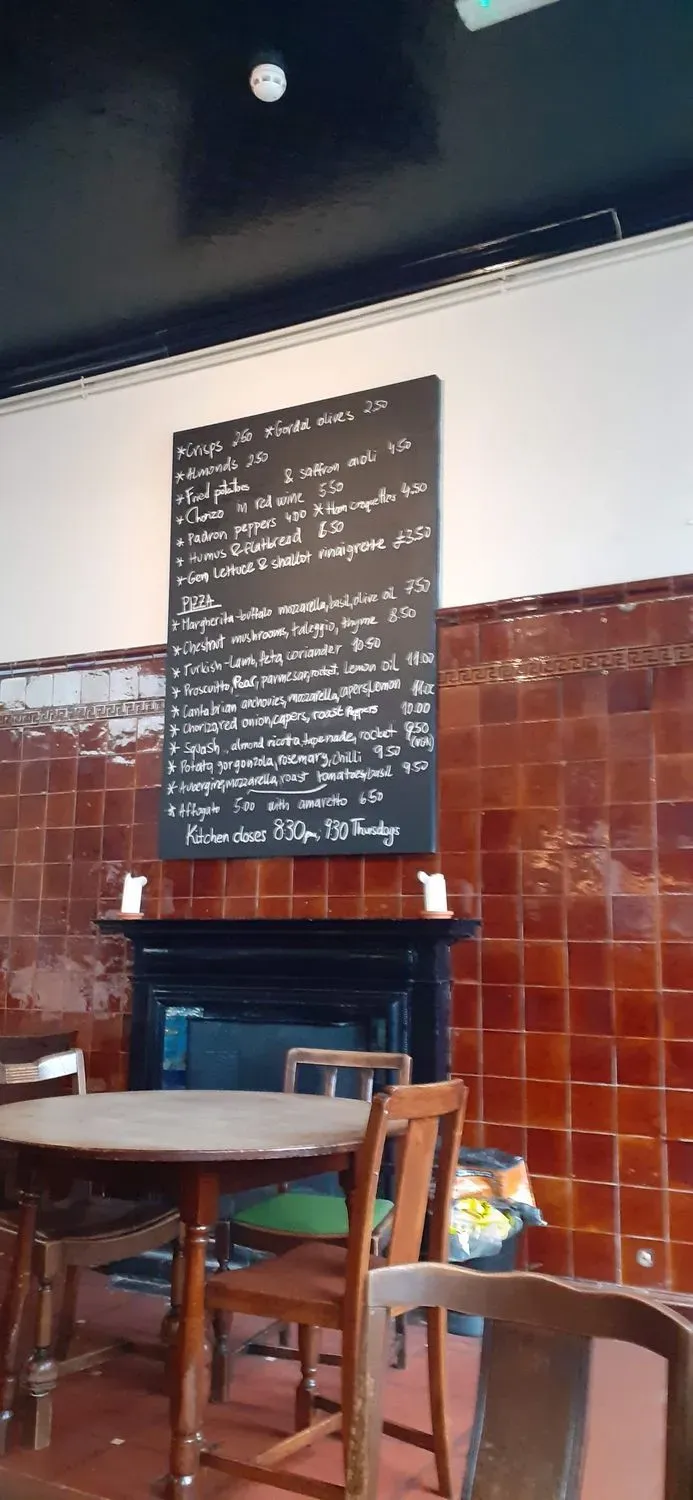 *Crisps 2.50 *Gordal olives 2.50
*Almonds 2.50
*Fried potatoes & saffron aioli 4.50
*Chorizo in red wine 5.50
*Padron peppers 4.00 *Ham croquettes 4.50
*Humus & flatbread 6.50
*Gem lettuce & shallot vinaigrette £3.50
PIZZA
*Margherita-buffalo mozzarella, basil, olive oil 7.50
*Chestnut mushrooms, taleggio, thyme 8.50
*Turkish-Lamb, feta, coriander 10.50
*Proscuitto, Pear, parmesan, rocket, Lemon oil 11.00
*Cantabrian anchovies, mozzarella, capers, Lemon
*Chorizo, red onion, capers, roast peppers 10.00
*Squash, almond ricotta, tapenade, rocket 9.50
*Potato, gorgonzola, rosemary, chilli 9.50
*Aubergine, mozzarella, roast tomatoes, basil 9.50
*Affogato 5.00 with amaretto 6.50
Kitchen closes 8:30pm, 9:30 Thursdays